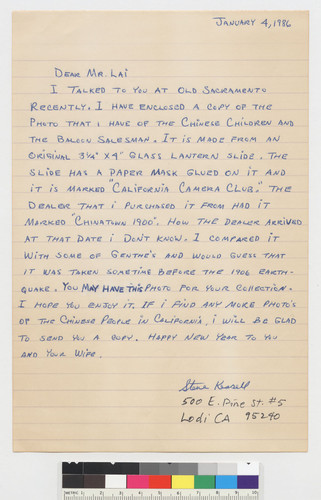 JANUARY 4, 1986
DEAR MR. LAI
I TALKED TO YOU AT OLD SACRAMENTO
RECENTLY. I HAVE ENCLOSED A COPY OF THE
PHOTO THAT I HAVE OF THE CHINESE CHILDREN AND
THE BALOON SALESMAN. IT IS MADE FROM AN
ORIGINAL 3¼" X 4" GLASS LANTERN SLIDE. THE
SLIDE HAS A PAPER MASK GLUED ON IT AND
IT IS MARKED "CALIFORNIA CAMERA CLUB." THE
DEALER THAT I PURCHASED IT FROM HAD IT
MARKED "CHINATOWN 1900". HOW THE DEALER ARRIVED
AT THAT DATE I DON'T KNOW. I COMPARED IT
WITH SOME OF GENTHE'S AND WOULD GUESS THAT
IT WAS TAKEN SOMETIME BEFORE THE 1906 EARTH-
QUAKE. YOU MAY HAVE THIS PHOTO FOR YOUR COLLECTION.
I HOPE YOU ENJOY IT. IF I FIND ANY MORE PHOTO'S
OF THE CHINESE PEOPLE IN CALIFORNIA, I WILL BE GLAD
TO SEND YOU A COPY. HAPPY NEW YEAR TO YOU
AND YOUR WIFE.
Steve
500 E. Pine St. #5
Lodi CA 95240